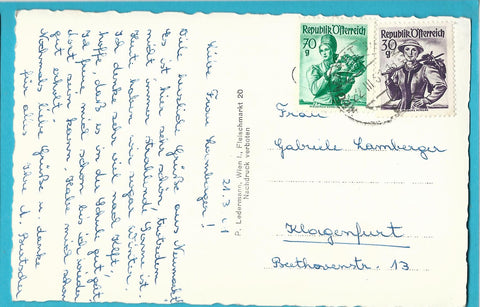 Liebe Frau Lamberger!
21.3.61
Viel herzliche Grüße aus Neumarkt!
Es ist hier sehr schön, trotzdem
nicht immer strahlende Sonne ist.
Heute haben wir sogar Winter.
Ich denke sehr viel nach Klft,
hoffe, daß es in der Schule gut geht.
Ich freue mich schon bis ich wieder
dort sein kann. Habe mich schon
gut erholt.
Nochmals liebe Grüße u. danke
für alles Ihre
P. Ledermann, Wien I., Fleischmarkt 20
Nachdruck verboten
Republik Österreich
70
g
Republik Österreich
30
g
Frau
Gabriele Lamberger
Klagenfurt
Beethovenstr. 13